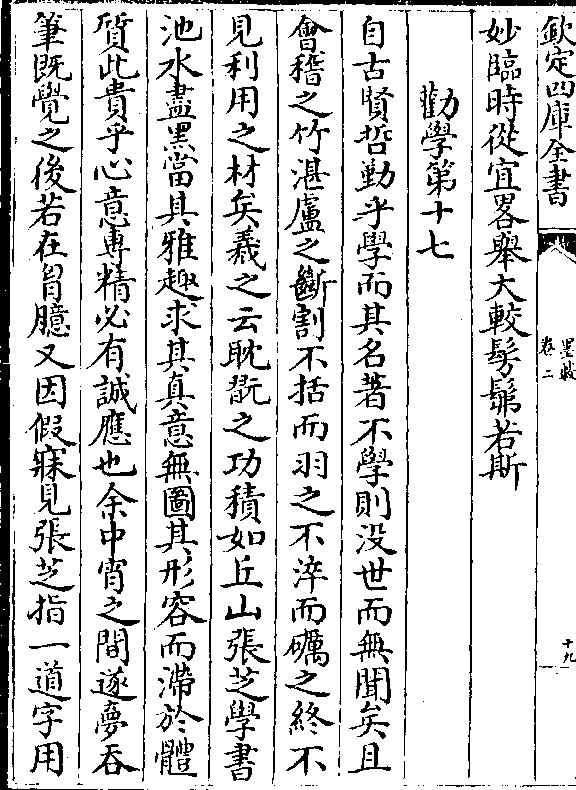 欽定四庫全書
墨藪
卷二
十九
妙臨時從宜畧舉大較髣髴若斯
勸學第十七
自古賢哲勤乎學而其名著不學則没世而無聞矣且
會稽之竹湛盧之斷割不括而羽之不淬而礪之終不
見利用之材矣羲之云耽翫之功積如丘山張芝學書
池水盡黑當具雅趣求其真意無圖其形容而滯於體
質此貴乎心意專精必有誠應也余中宵之間遂夢吞
筆既覺之後若在胷臆又因假寐見張芝指一道字用